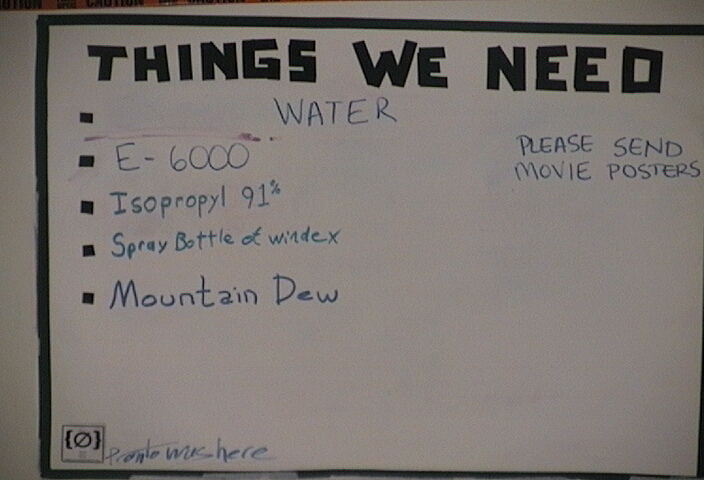 CAUTION
THINGS WE NEED
WATER
E-6000
Isopropyl 91%
Spray Bottle of windex
Mountain Dew
PLEASE SEND
MOVIE POSTERS
{Ø}
Pronto was here